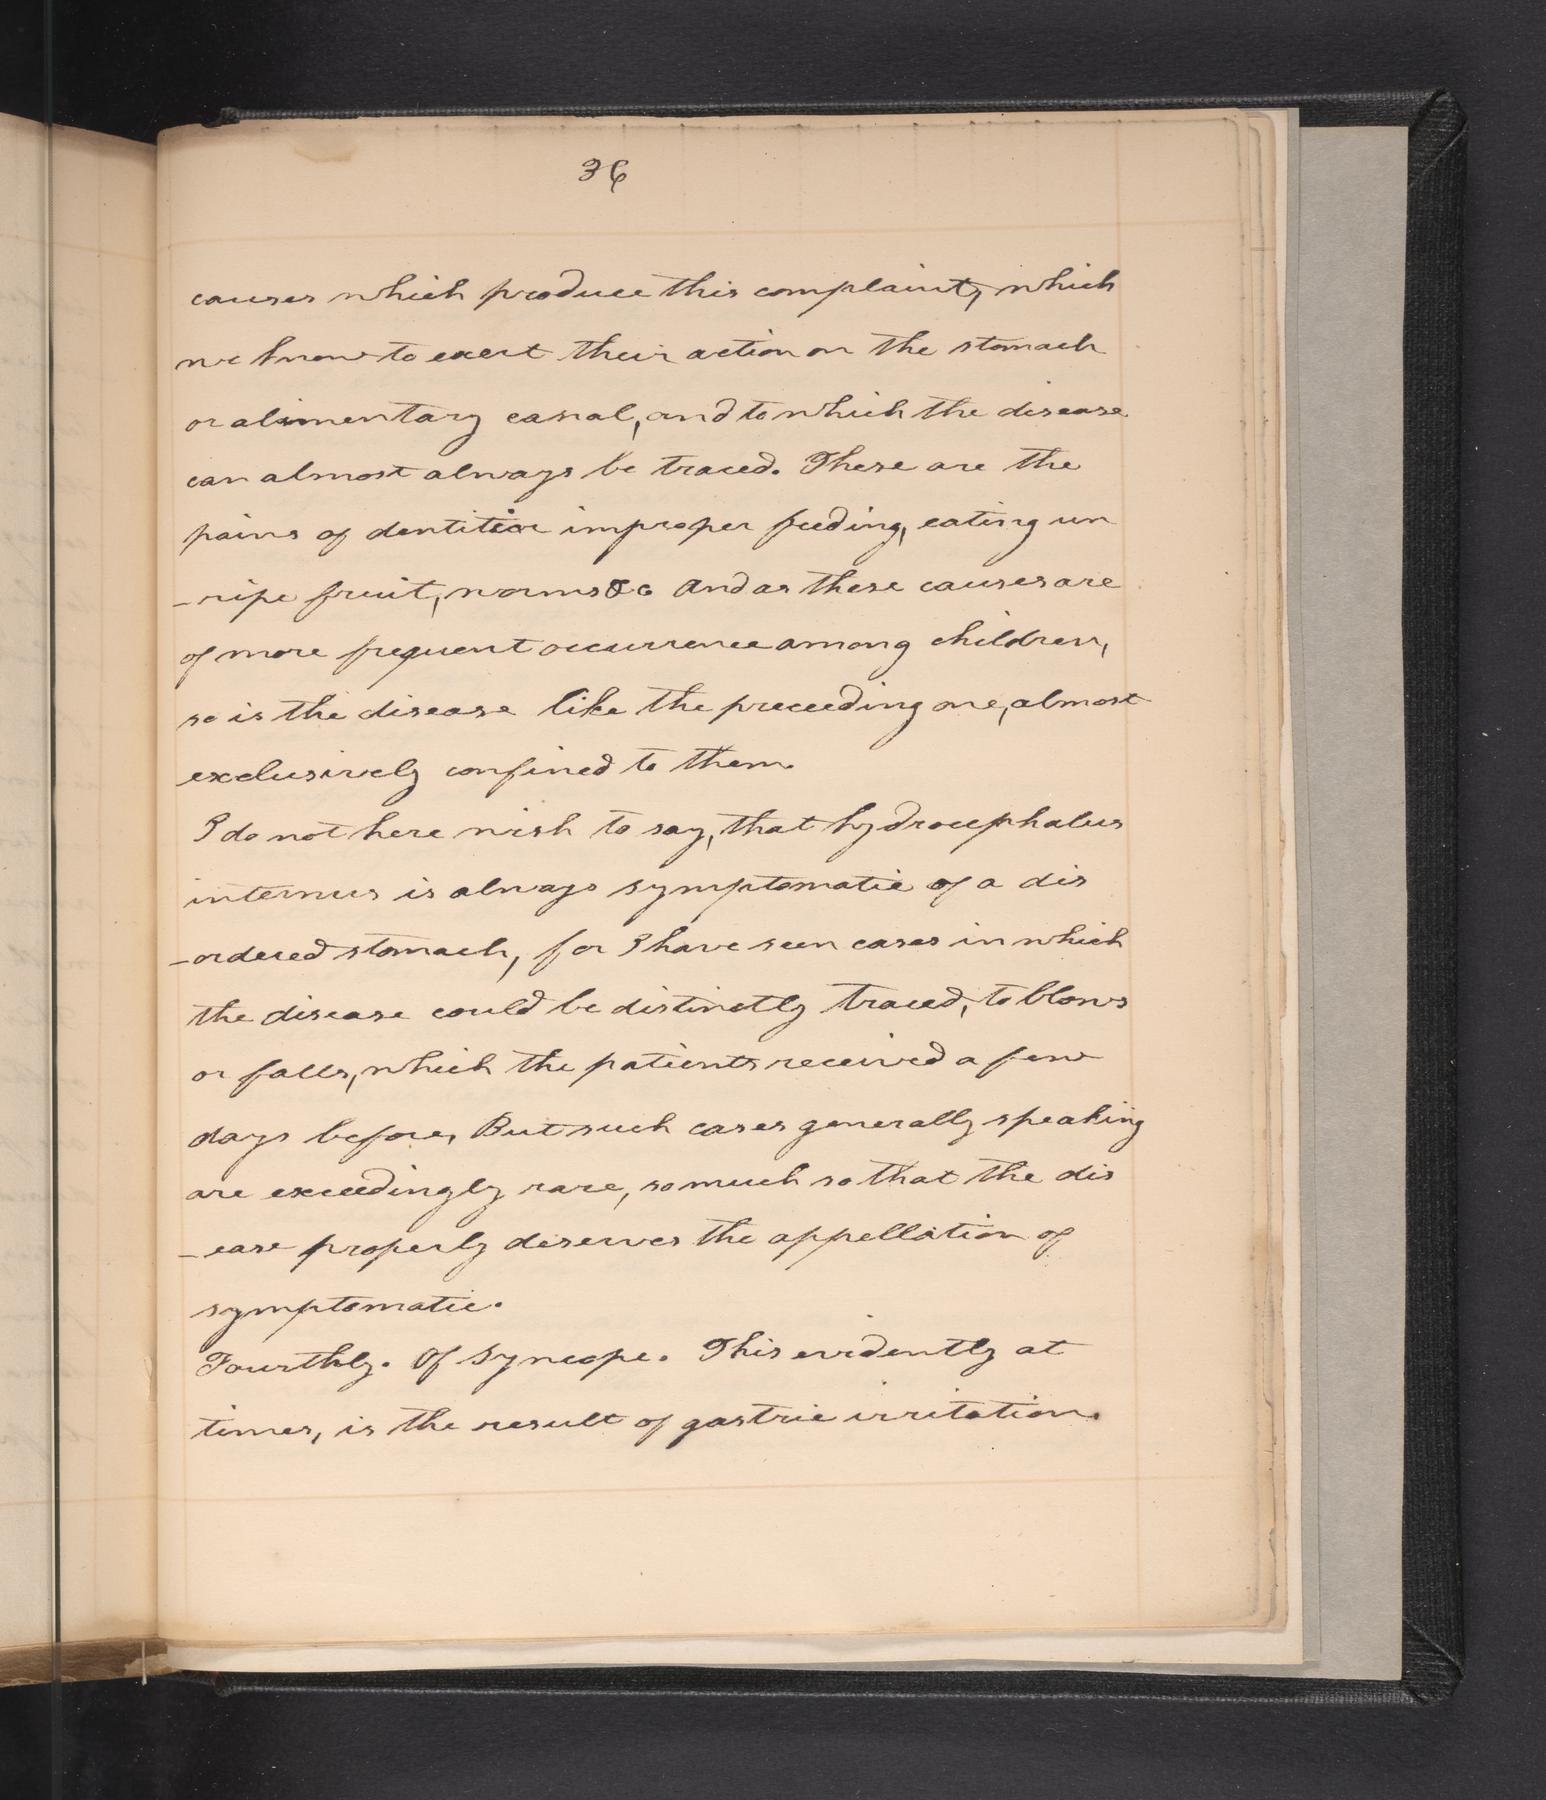 36
causes which produce this complaint, which
we know to exert their action on the stomach
or alimentary canal, and to which the disease
can almost always be traced. These are the
pains of dentition improper feeding, eating un
-ripe fruit, worms &c And as these causes are
of more frequent occurrence among children,
so is the disease like the preceeding one, almost
exclusively confined to them.
I do not here wish to say, that hydrocephalus
internus is always symptomatic of a dis
-ordered stomach, for I have seen cases in which
the disease could be distinctly traced, to blows
or falls, which the patients received a few
days before, But such cases generally speaking
are exceedingly rare, so much so that the dis
-ease properly deserves the appellation of
symptomatic.
Fourthly. Of Syncope. This evidently at
times, is the result of gastric irritation.